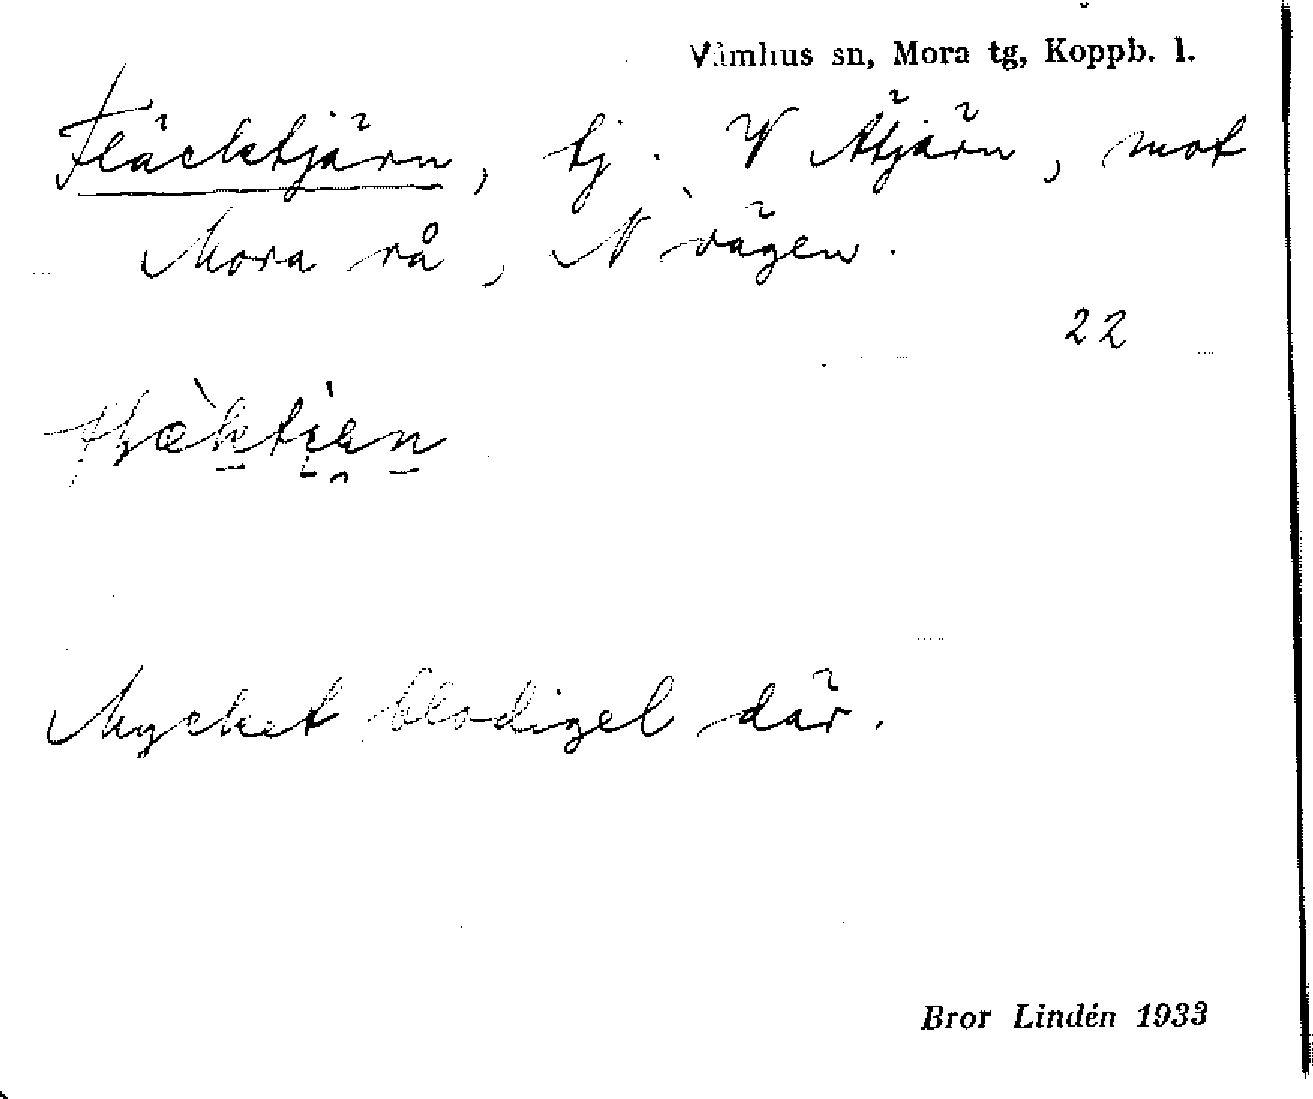 Våmhus sn, Mora tg, Koppb. l.
Fläcktjärn, tj. V Ätjärn, mot
Mora rå, N vägen.
22
Mycket blodigel där.
Bror Lindén 1933